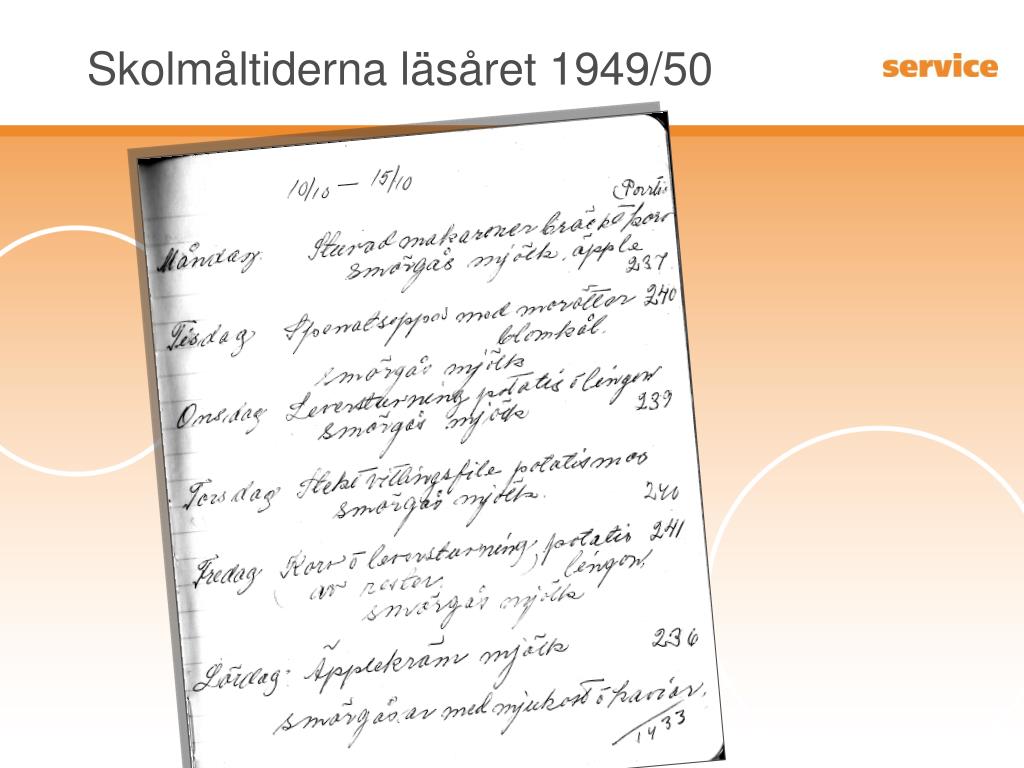 Skolmåltiderna läsåret 1949/50
service
10/10 — 15/10
Portio
Måndag. Stuvad makaroner bräckt korv
smörgås mjölk, äpple
237.
Tisdag Spenatsoppa med morötter 240
blomkål.
smörgås mjölk
Onsdag Leverstuvning potatis o lingon
smörgås mjölk 239
Torsdag Stekt vitlingsfile potatismos
smörgås mjölk. 240
Fredag Korv o leverstuvning, potatis 241
(av rester. lingon.
smörgås mjölk
Lördag: Äpplekräm mjölk 236
smörgås av med mjukost o kaviar.
1433